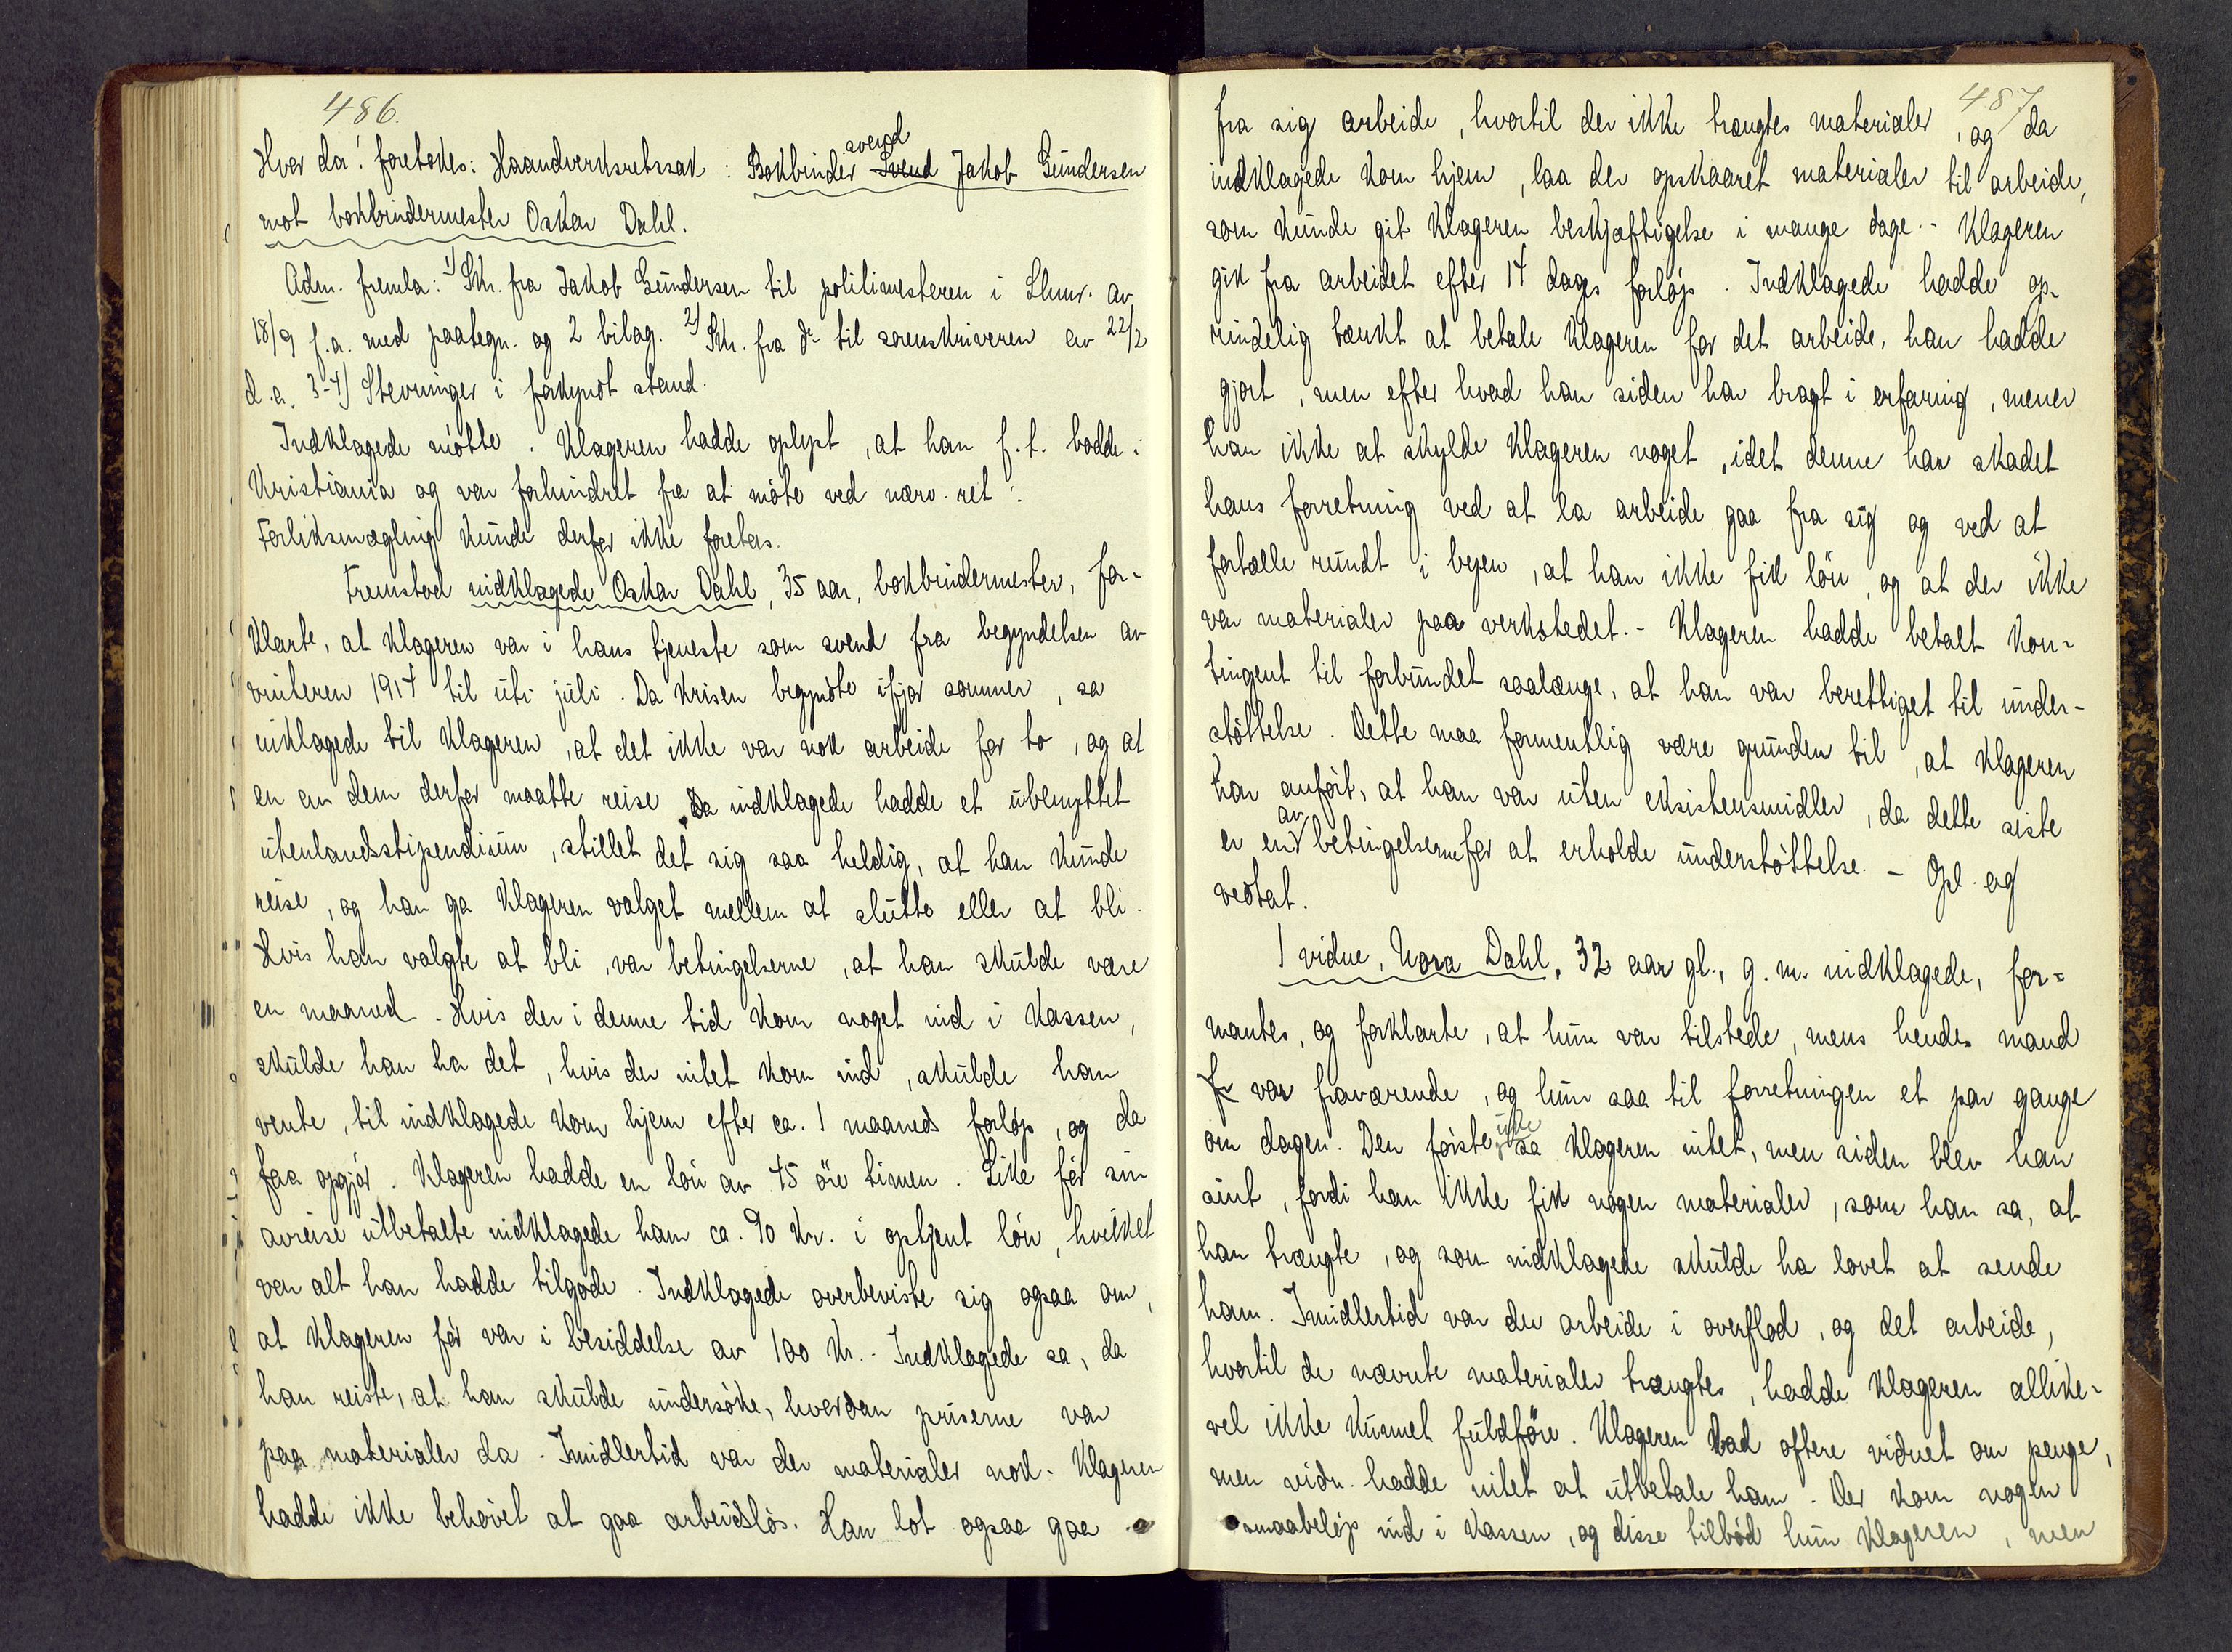 486.
Hvor da! foretokes: Haandverksretssak: Bokbinder ~~Svend~~ svend Jakob Gundersen
mot bokbindermester Oskar Dahl.
Adm. fremla: 1) Skr. fra Jakob Gundersen til politimesteren i Lhmr. av
18/9 f.a. med paategn. og 2 bilag. 2) Skr. fra do til sorenskriveren av 22/2
d.a. 3-4) Stevninger i forkyndt stand.
Indklagede møtte. Klageren hadde oplyst, at han f.t. bodde i
Kristiania og var forhindret fra at møte ved nærv. ret.
Forliksmægling kunde derfor ikke foretas.
Fremstod indklagede Oskar Dahl, 35 aar, bokbindermester, for-
klarte, at klageren var i hans tjeneste som svend fra begyndelsen av
vinteren 1914 til uti juli. Da krisen begyndte ifjor sommer, sa
inklagede til klageren, at det ikke var nok arbeide for to, og at
en av dem derfor maatte reise. Da indklagede hadde et ubenyttet
utenlandsstipendium, stillet det sig saa heldig, at han kunde
reise, og han ga klageren valget mellem at slutte eller at bli.
Hvis han valgte at bli, var betingelserne, at han skulde være
en maaned. Hvis der i denne tid kom noget ind i kassen,
skulde han ha det, hvis der intet kom ind, skulde han
vente, til indklagede kom hjem efter ca. 1 maaneds forløp, og da
faa opgjør. Klageren hadde en løn av 45 øre timen. Like før sin
avreise utbetalte indklagede ham ca. 90 kr. i optjent løn, hvilket
var alt han hadde tilgode. Indklagede overbeviste sig ogsaa om,
at klageren før var i besiddelse av 100 kr. - Indklagede sa, da
han reiste, at han skulde undersøke, hvordan priserne var
paa materialer da. Imidlertid var der materialer nok. Klageren
hadde ikke behøvet at gaa arbeidsløs. Han lot ogsaa gaa
487
fra sig arbeide, hvortil der ikke trængtes materialer, og da
indklagede kom hjem, laa der opskaaret materialer til arbeide,
som kunde git klageren beskjæftigelse i mange dage. - Klageren
gik fra arbeidet efter 14 dages forløp. Indklagede hadde op-
rindelig tænkt at betale klageren for det arbeide, han hadde
gjort, men efter hvad han siden har bragt i erfaring, mener
han ikke at skylde klageren noget, idet denne har skadet
hans forretning ved at la arbeide gaa fra sig og ved at
fortælle rundt i byen, at han ikke fik løn, og at der ikke
var materialer paa verkstedet. - Klageren hadde betalt kon-
tingent til forbundet saalænge, at han var berettiget til under-
støttelse. Dette maa formentlig være grunden til, at klageren
har anført, at han var uten eksistensmidler, da dette siste
er en av betingelserne for at erholde understøttelse. - Opl. og
vedtat.
1 vidne, Nora Dahl, 32 aar gl., g.m. indklagede, for-
mantes, og forklarte, at hun var tilstede, mens hendes mand
~~fr~~ var fraværende, og hun saa til forretningen et par gange
om dagen. Den første uke sa klageren intet, men siden blev han
sint, fordi han ikke fik nogen materialer, som han sa, at
han trængte, og som indklagede skulde ha lovet at sende
ham. Imidlertid var der arbeide i overflod, og det arbeide,
hvortil de nævnte materialer trængtes, hadde klageren allike-
vel ikke kunnet fuldføre. Klageren bad oftere vidnet om penge,
men vidn. hadde intet at utbetale ham. Der kom nogen
smaabeløp ind i kassen, og disse tilbød hun klageren, men